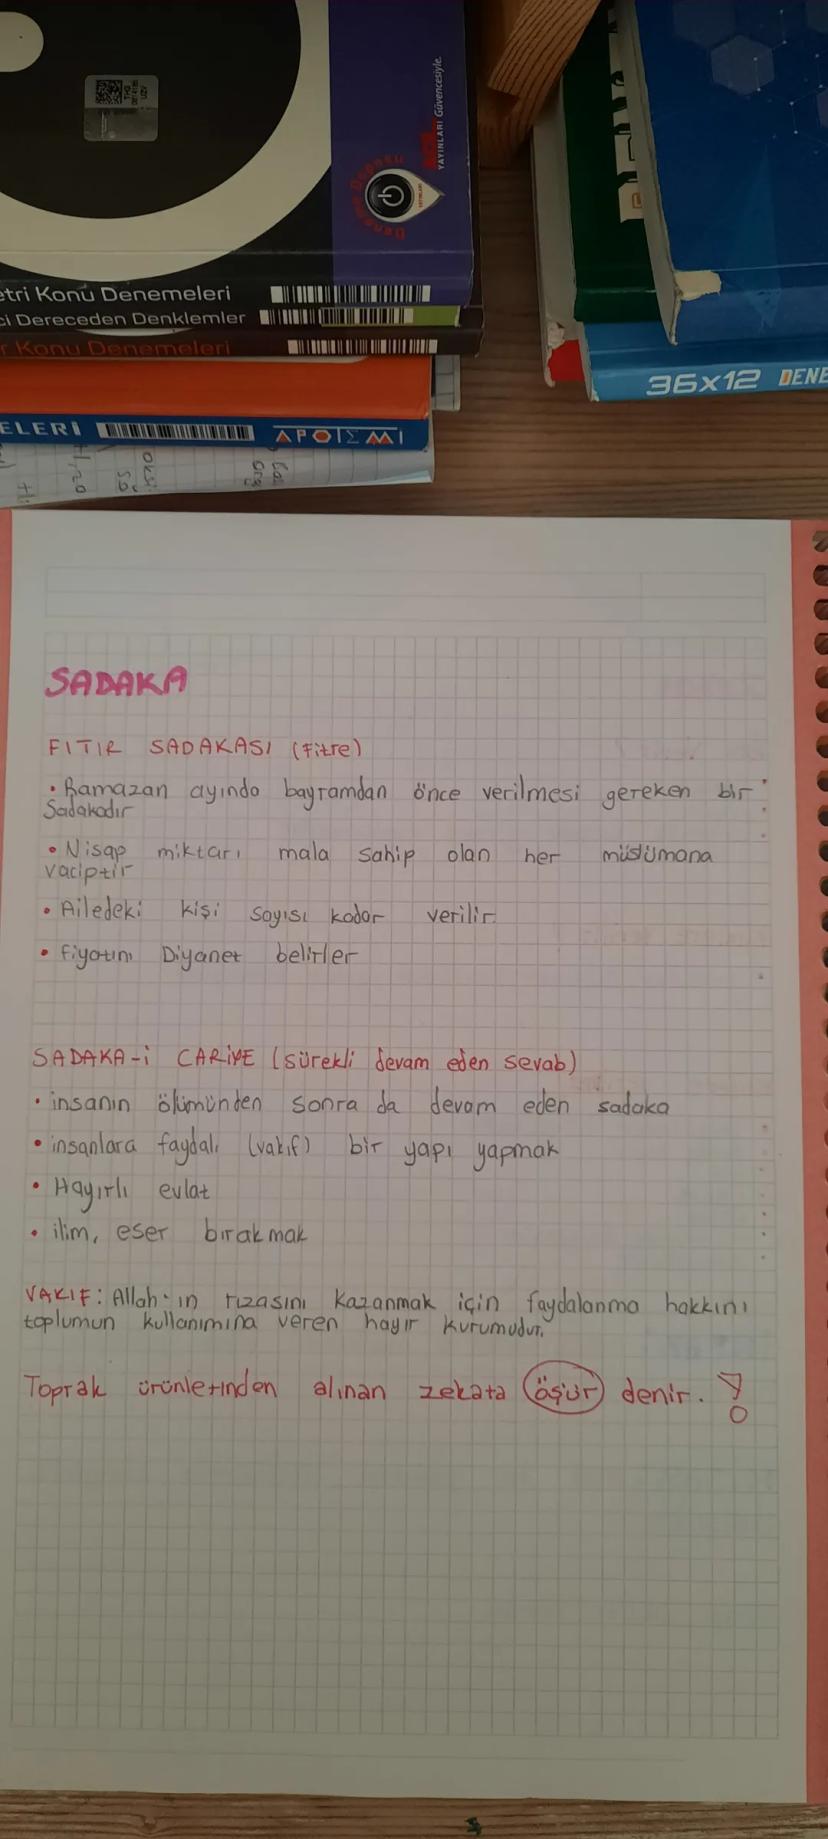 YAYINLARI Güvencesiyle.
Deneme Deposu
etri Konu Denemeleri
ci Dereceden Denklemler
r Konu Denemeleri
ELERİ
APOİEMİ
36x12 DENE
SADAKA
FITIR SADAKASI (Fitre)
• Ramazan ayında bayramdan önce verilmesi gereken bir
Sadakadır
• Nisap miktarı mala sahip olan her müslümana
vaciptir
• Ailedeki kişi sayısı kadar verilir
• fiyatını Diyanet belirler
SADAKA-i CARİYE (sürekli devam eden sevab)
• insanın ölümünden sonra da devam eden sadaka
• insanlara faydalı (vakıf) bir yapı yapmak
• Hayırlı evlat
• ilim, eser bırakmak
VAKIF: Allah'ın rızasını kazanmak için faydalanma hakkını
toplumun kullanımına veren hayır kurumudur.
Toprak ürünlerinden alınan zekata öşür denir. !